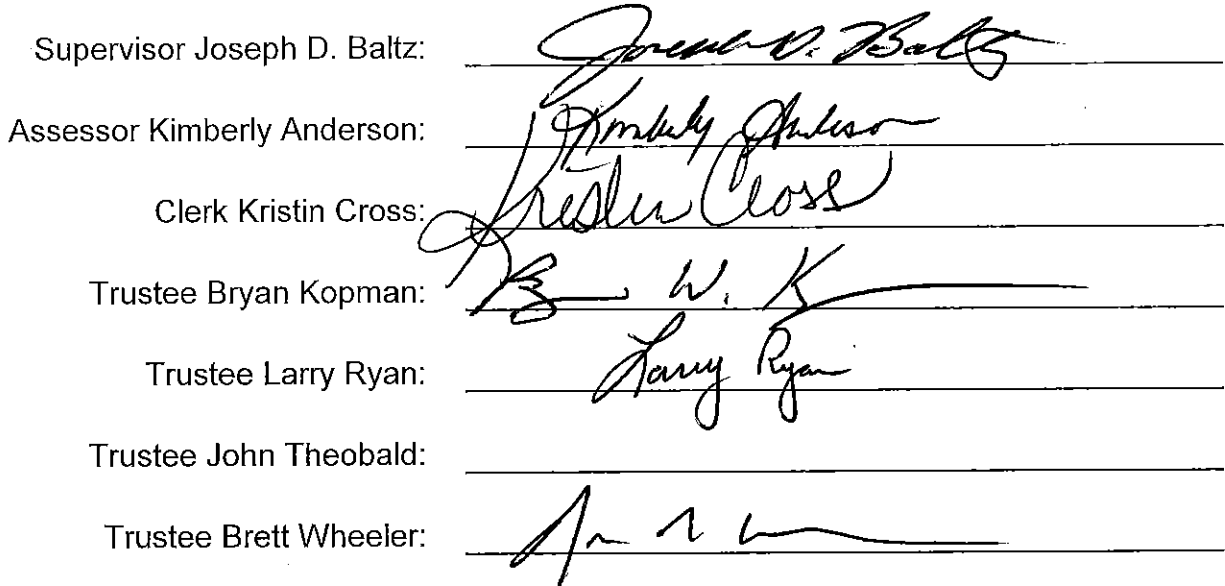 Supervisor Joseph D. Baltz: Joseph D. Baltz
Assessor Kimberly Anderson: Kimberly Anderson
Clerk Kristin Cross: Kristin Cross
Trustee Bryan Kopman: B W. K
Trustee Larry Ryan: Larry Ryan
Trustee John Theobald:
Trustee Brett Wheeler: